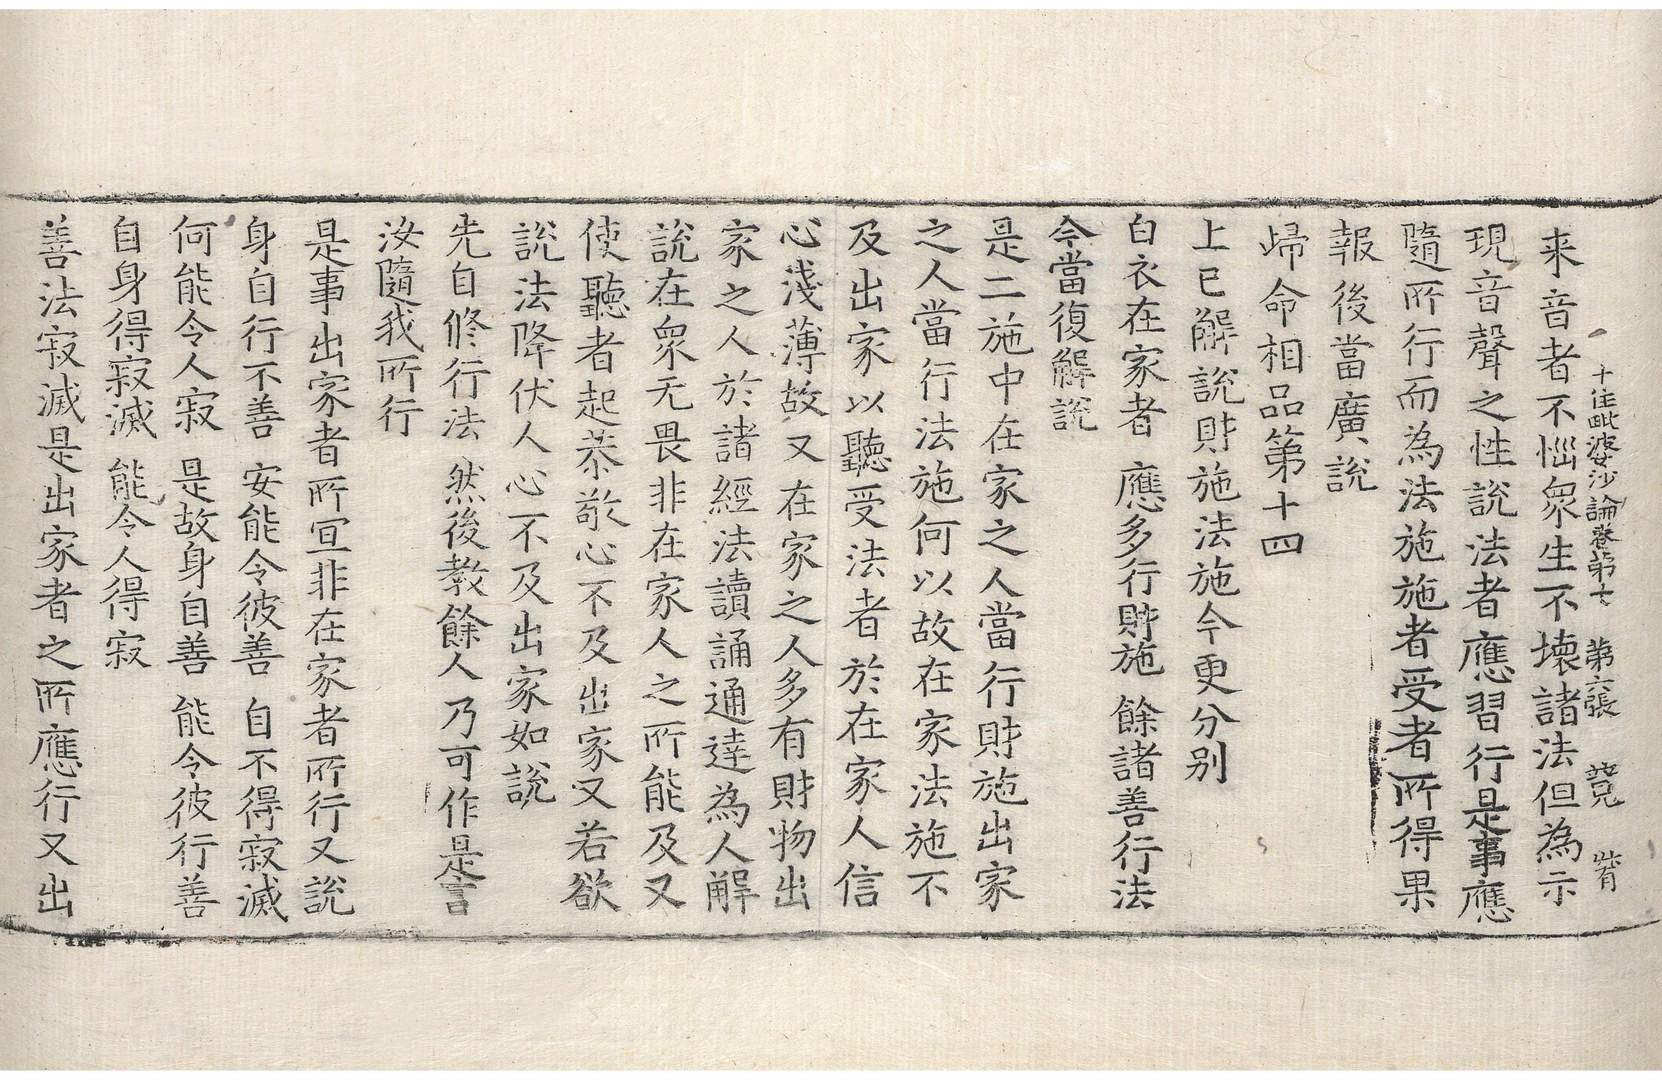 十住毗婆沙論卷第七 第六張 兢
来音者不惱衆生不壞諸法但為示
現音聲之性說法者應習行是事應
隨所行而為法施施者受者所得果
報後當廣說
歸命相品第十四
上已解說財施法施今更分別
白衣在家者 應多行財施 餘諸善行法
今當復解說
是二施中在家之人當行財施出家
之人當行法施何以故在家法施不
及出家以聽受法者於在家人信
心淺薄故又在家之人多有財物出
家之人於諸經法讀誦通達為人解
說在衆无畏非在家人之所能及又
使聽者起恭敬心不及出家又若欲
說法降伏人心不及出家如說
先自修行法 然後教餘人 乃可作是言
汝隨我所行
是事出家者所宜非在家者所行又說
身自行不善 安能令彼善 自不得寂滅
何能令人寂 是故身自善 能令彼行善
自身得寂滅 能令人得寂
善法寂滅是出家者之所應行又出